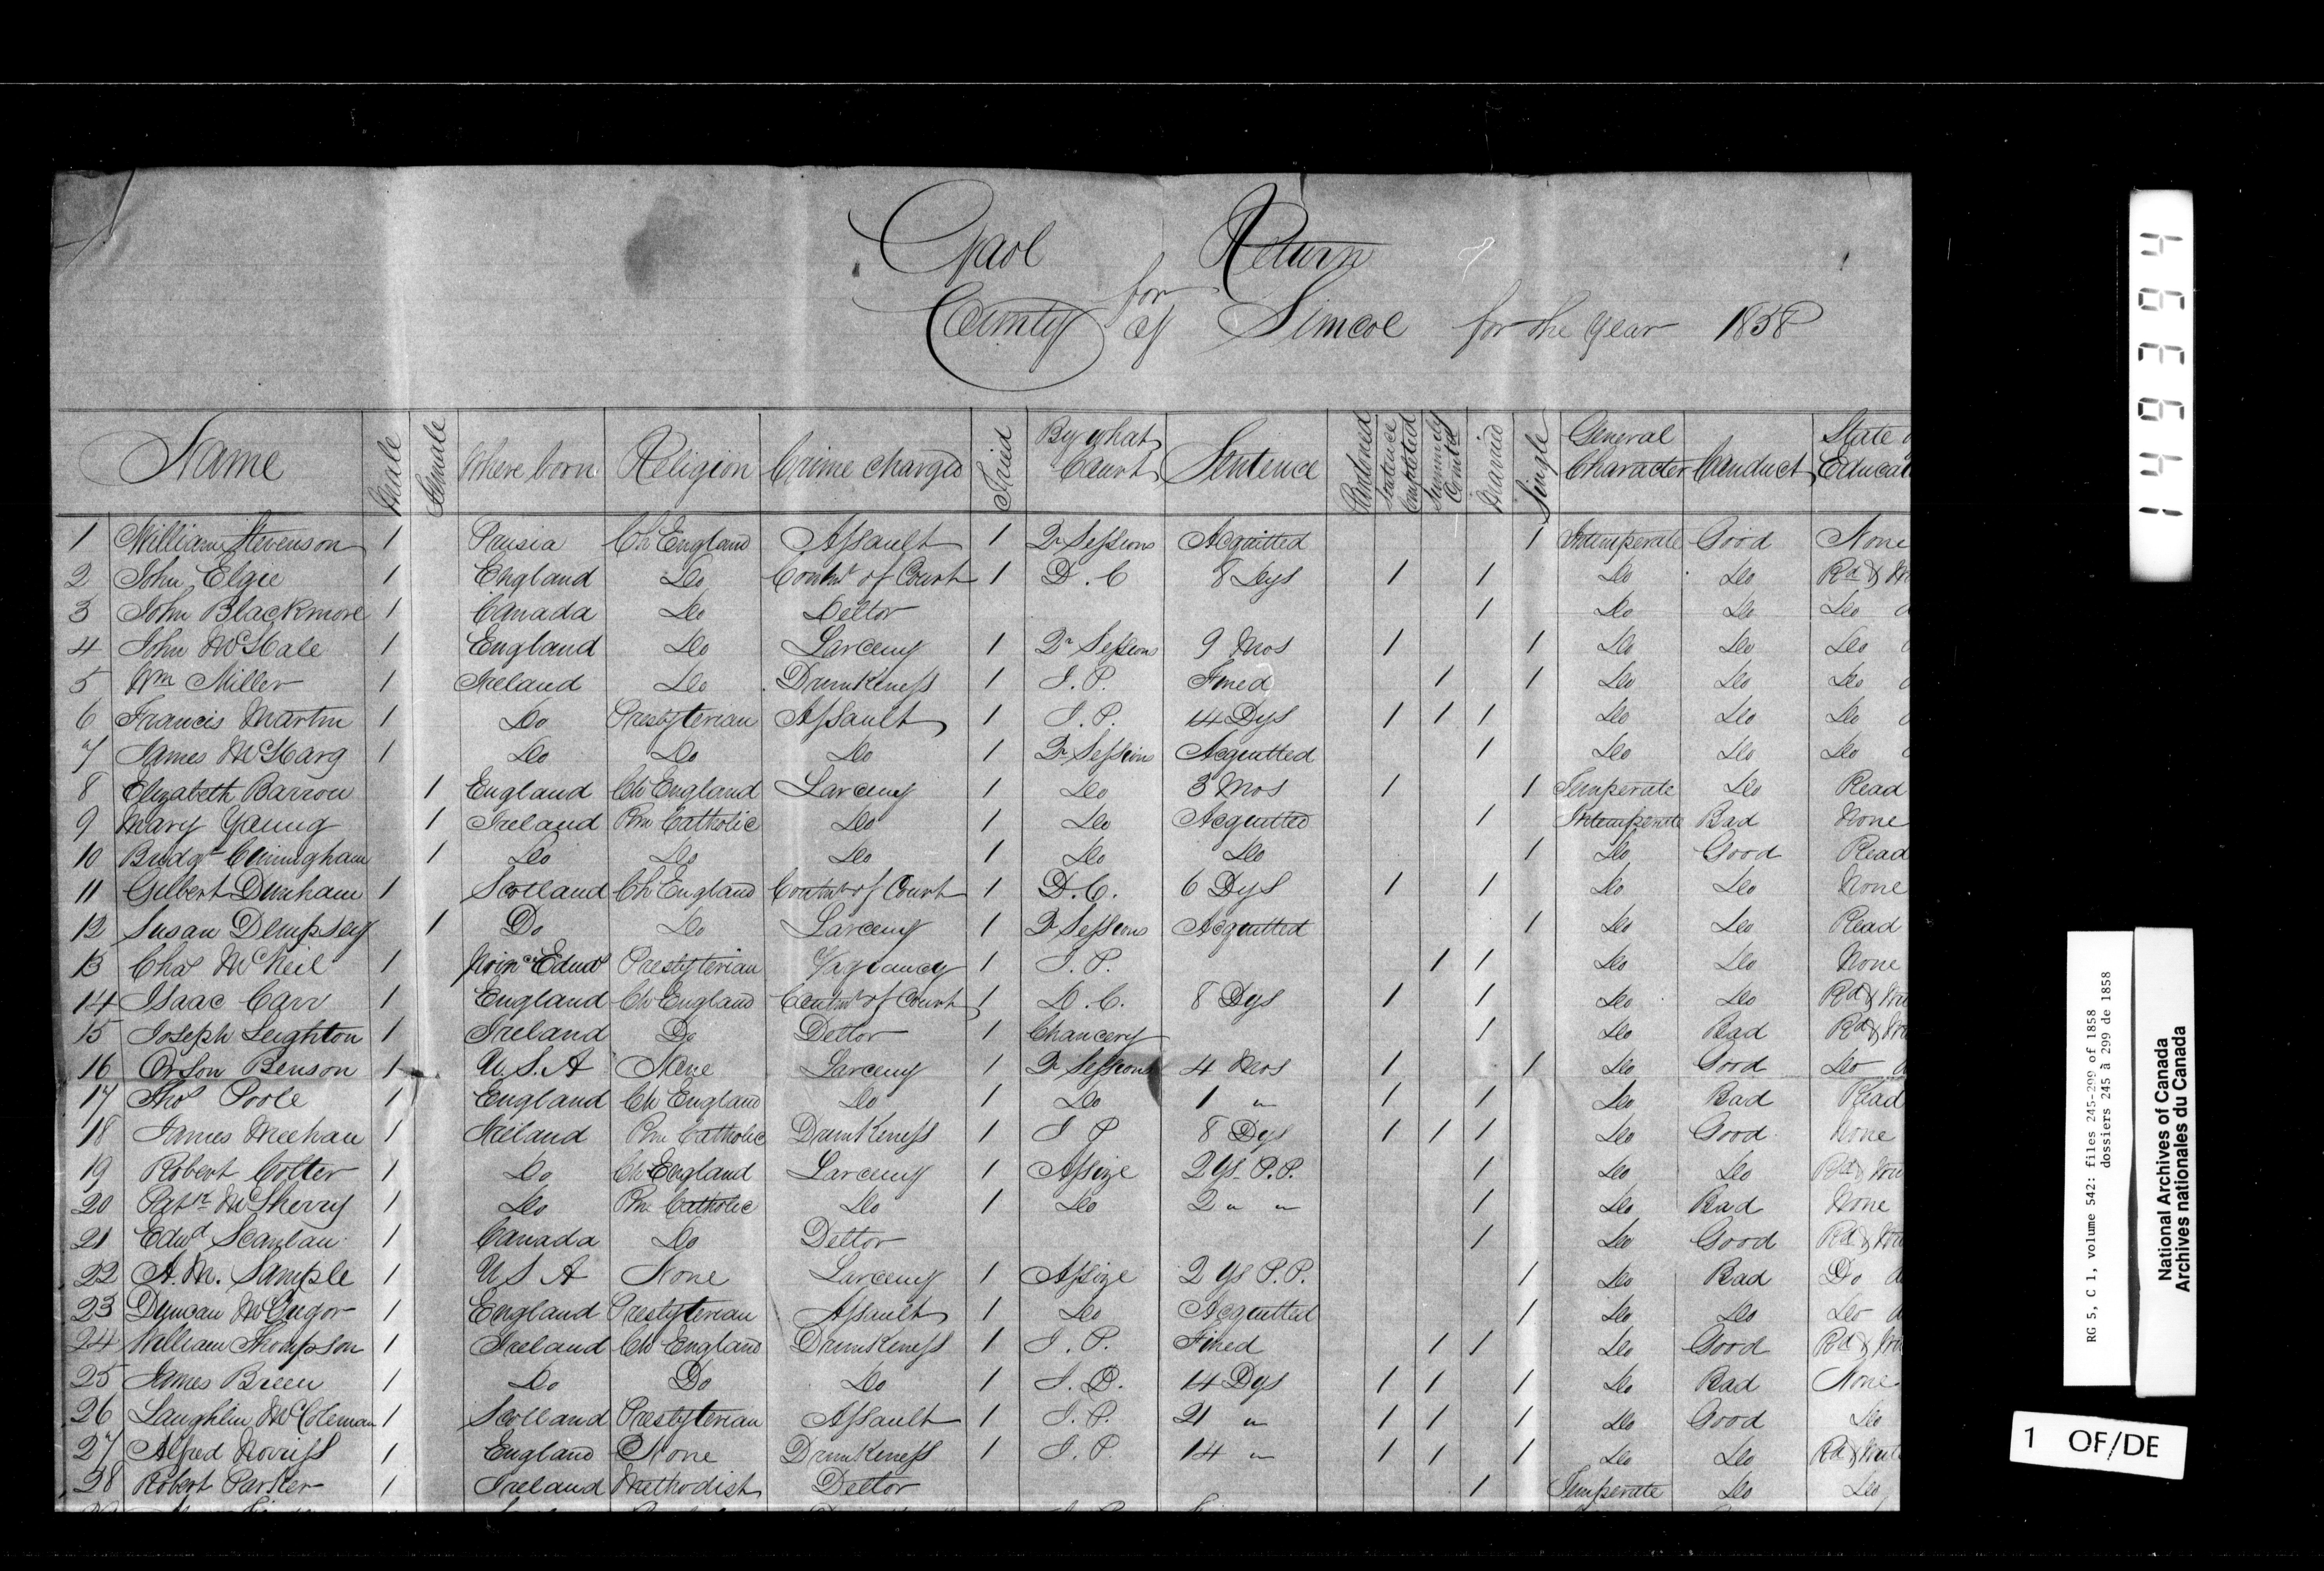 Gaol Return
for
County of Simcoe for the Year 1858
Name Male Female Where born Religion Crime charged Tried By what Court Sentence Pardoned Sentence Completed Summarily Comitd Married Single General Character Conduct State Educa
1 William Stevenson 1 Ch England Assault 1 Qr Sessions Acquitted 1 Intemperate Good None
2 John Elgie 1 England Do Contmt of Court 1 D. C 8 Dys 1 1 Do Do Rd &
3 John Blackmore 1 Canada Do Debtor 1 Do Do Do
4 John McHale 1 England Do Larceny 1 Qr Sessions 9 Mos 1 1 Do Do Do
5 Wm Miller 1 Ireland Do Drunkeness 1 J. P. Fined 1 1 Do Do Do
6 Francis Martin 1 Do Presbyterian Assault 1 J. P. 14 Dys 1 1 1 Do Do Do
7 James McHarg 1 Do Do Do 1 Qr Sessions Acquitted 1 Do Do Do
8 Elizabeth Barron 1 England Ch England Larceny 1 Do 3 Mos 1 1 Temperate Do Read
9 Mary Young 1 Ireland Rm Catholic Do 1 Do Acquitted 1 Intemperate Bad None
10 Bridgt Cunningham 1 Do Do Do 1 Do Do 1 Do Good Read
11 Gilbert Dunham 1 Scotland Ch England Contmt of Court 1 D. C. 6 Dys 1 1 Do Do None
12 Susan Dempsey 1 Do Do Larceny 1 Qr Sessions Acquitted 1 Do Do Read
13 Chas McNeil 1 Prince Edwd Presbyterian Vagrancy 1 J. P. 1 1 Do Do None
14 Isaac Carr 1 England Ch England Contmt of Court 1 D. C. 8 Dys 1 1 Do Do Rd & Wri
15 Joseph Leighton 1 Ireland Do Debtor 1 Chancery 1 Do Bad Rd & Wri
16 Orson Benson 1 U. S. A None Larceny 1 Qr Sessions 4 Mos 1 1 Do Good Do
17 Thos Poole 1 England Ch England Do 1 Do 1 " 1 1 Do Bad Read
18 James Meehan 1 Ireland Rm Catholic Drunkeness 1 J P 8 Dys 1 1 1 Do Good None
19 Robert Colter 1 Do Ch England Larceny 1 Assize 2 Ys P.P. 1 Do Do Rd & Wri
20 Patk McSherry 1 Do Rm Catholic Do 1 Do 2 " " 1 Do Bad None
21 Edwd Scanlan 1 Canada Do Debtor 1 Do Good Rd & Wri
22 A. M. Sample 1 U S A None Larceny 1 Assize 2 Ys P.P. 1 Do Bad Do
23 Duncan McGregor 1 England Presbyterian Assault 1 Do Acquitted 1 Do Do Do
24 William Thompson 1 Ireland Ch England Drunkeness 1 J. P. Fined 1 1 Do Good Rd & Wri
25 James Breen 1 Do Do Do 1 J. P. 14 Dys 1 1 1 Do Bad None
26 Laughlin McColeman 1 Scotland Presbyterian Assault 1 J. P. 21 " 1 1 1 Do Good Do
27 Alfred Norriss 1 England None Drunkeness 1 J. P. 14 " 1 1 1 Do Do Rd & Writ
28 Robert Parker 1 Ireland Methodist Debtor 1 Temperate Do Do
149394
RG 5, C 1, volume 542: files 245-299 of 1858
dossiers 245 à 299 de 1858
National Archives of Canada
Archives nationales du Canada
1 OF/DE